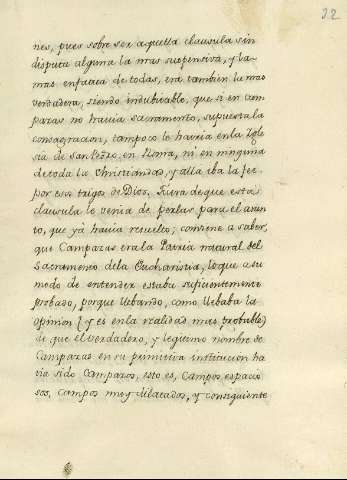 32
nes, pues sobre ser aquella clausula sin
disputa alguna la mas suspensiva, y la
mas enfatica de todas, era tambien la mas
verdadera, siendo indubitable, que si en Cam
pazas no havia sacramento, supuesta la
consagracion, tampoco le havria en la Igle
sia de San Pedro en Roma, ni en ninguna
de toda la Christiandad, y alla iba la fee
por esos trigos de Dios. Fuera de que esta
clausula le venia de perlas para el asun
to, que yà havia resuelto; conviene a saber,
que Campazas era la Patria natural del
Sacramento dela Eucharistia, lo que a su
modo de entender estaba suficientemente
probado, porque llebando, como llebaba la
opinion (y es en la realidad mas probable)
de que el verdadero, y legitimo nombre de
Campazas en su primitiva institucion ha
via sido Campazos, esto es, Campos espacio
sos, Campos muy dilatados, y consiguiente